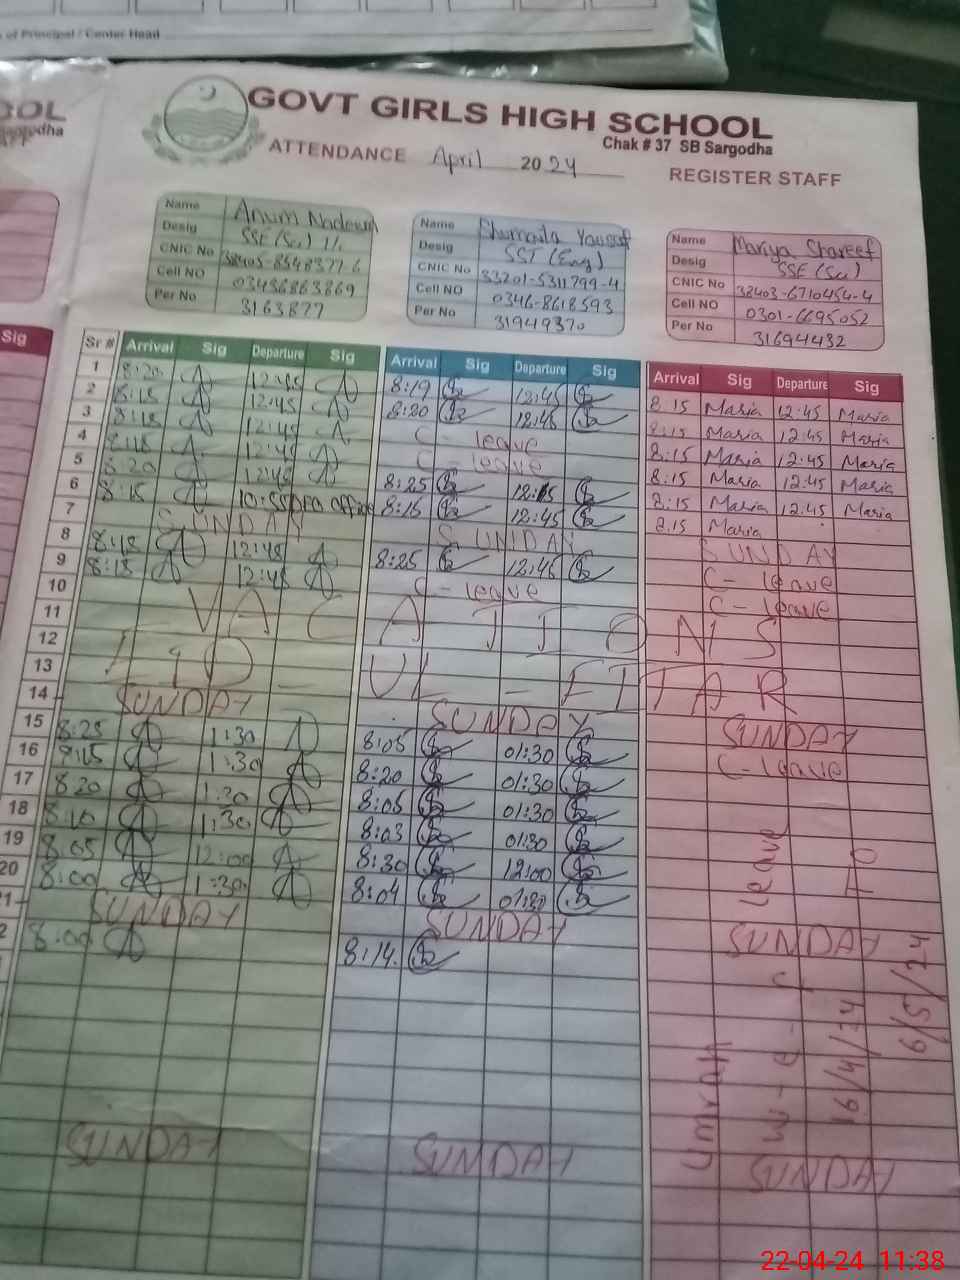 of Principal / Center Head
GOVT GIRLS HIGH SCHOOL
Chak # 37 SB Sargodha
ATTENDANCE April 2024
REGISTER STAFF
Name Anum Nadeem
Desig SSE (Sci)
CNIC No
Cell NO 03436863869
Per No 3163877
Name Shumaila Yousaf
Desig SST (Eng)
CNIC No 33201-5311799-4
Cell NO 0346-8618593
Per No 31949370
Name Mariya Shareef
Desig SSE (Sci)
CNIC No 38403-6710454-4
Cell NO 0301-6695052
Per No 31694432
Sig
Sr # Arrival Sig Departure Sig Arrival Sig Departure Sig Arrival Sig Departure Sig
1 8:20 12:45 8:19 12:45 8:15 Maria 12:45 Maria
2 8:15 12:45 8:20 12:45 8:15 Maria 12:45 Maria
3 8:18 12:45 C - leave 8:15 Maria 12:45 Maria
4 8:18 12:45 C - leave 8:15 Maria 12:45 Maria
5 8:20 12:45 8:25 8:15 Maria 12:45 Maria
6 8:15 8:15 12:45 8:15 Maria
7 SUNDAY SUNDAY SUNDAY
8 8:18 12:45 8:25 12:45 C - leave
9 8:18 12:45 C - leave C - leave
10 VACATIONS
11
12 EID - UL - FITAR
13
14 SUNDAY SUNDAY SUNDAY
15 8:25 1:30 8:05 01:30 C - leave
16 8:15 1:30 8:20 01:30
17 8:20 1:30 8:05 01:30
18 8:10 1:30 8:03 01:30
19 8:05 12:00 8:30 12:00
20 8:00 1:30 8:04 01:30
21 SUNDAY SUNDAY SUNDAY
8:00 8:14
Umrah leave
w-e-f
16/4/24
TO
6/5/24
SUNDAY SUNDAY SUNDAY
22-04-24 11:38